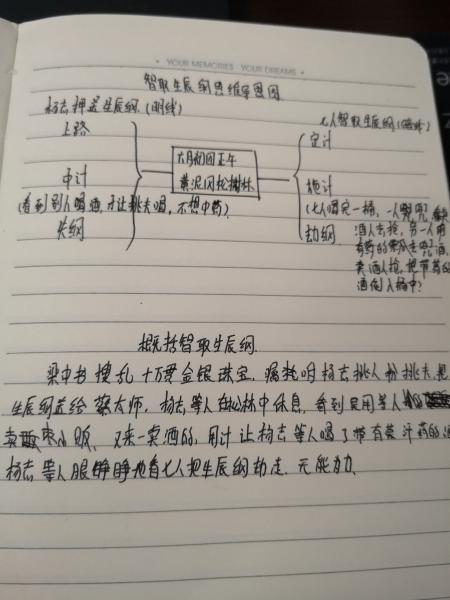 YOUR MEMORIES YOUR DREAMS
智取生辰纲思维导图
杨志押送生辰纲(明线)
七人智取生辰纲(暗线)
上路
定计
六月初四正午
黄泥冈松树林
中计
施计
(看到别人喝酒,才让挑夫喝,不想中药)
(七人喝完一桶,一人兜,卖
失纲
劫纲
酒人去抢,另一人用
有药的瓢去兜酒,
卖酒人抢,把带药的
酒倒入桶中)
概括智取生辰纲
梁中书搜乱十万贯金银珠宝,嘱托咱杨志挑人扮挑夫把
生辰纲送给蔡太师,杨志等人在松林中休息,看到吴用等人
卖枣小贩,又来一卖酒的,用计让杨志等人喝了带有蒙汗药的酒
杨志等人眼睁睁地看七人把生辰纲劫走,无能为力